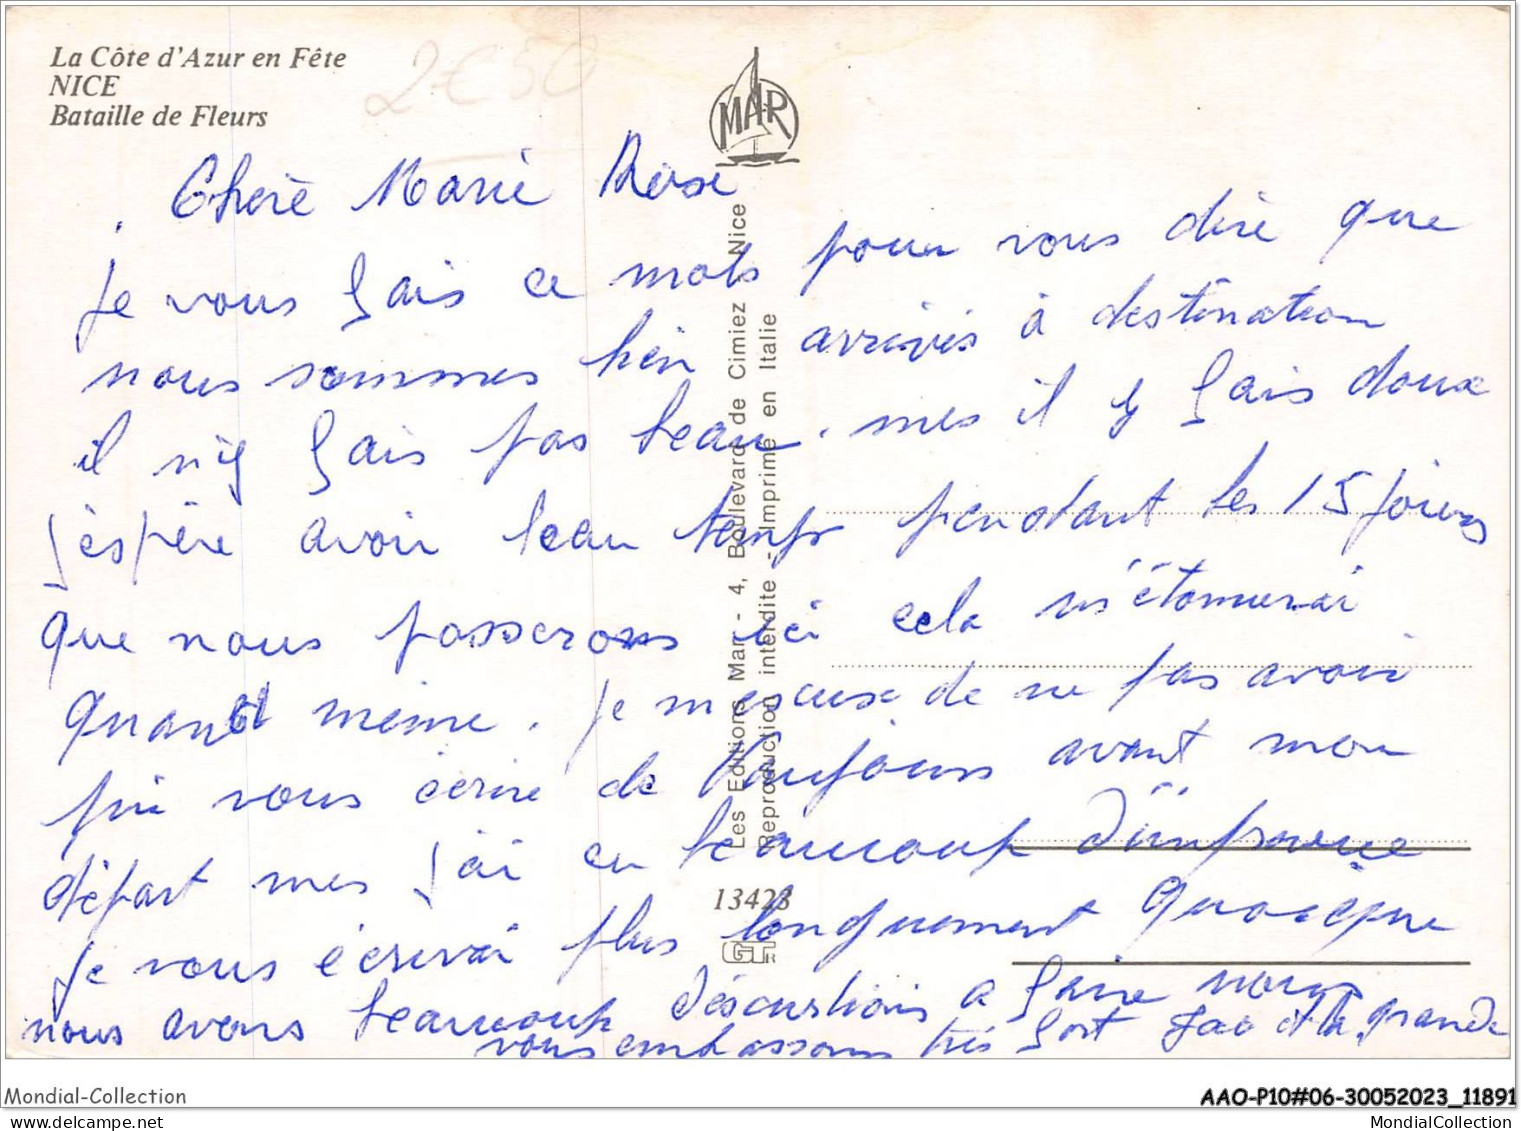 La Côte d'Azur en Fête
NICE
Bataille de Fleurs
2€50
MAR
Chère Marie Rose
je vous fais ce mots pour vous dire que
nous sommes bien arrivés à destination
il n'y fais pas beau. mes il y fais doux
j'espère avoir beau temps pendant les 15 jours
que nous passerons ici cela m'étonnerai
quand même. je mescuse de ne pas avoir
pu vous écrire de Vaujours avant mon
départ mes j'ai eu beaucoup d'impreuve
je vous écrirai plus longuement quoique
nous avons beaucoup déscurtions a faire nous
vous embassons très fort et la grande
Les Editions Mar - 4, Boulevard de Cimiez - Nice
Reproduction interdite - Imprimé en Italie
13423
GTR
Mondial-Collection
AAO-P10#06-30052023_11891
MondialCollection
MondialCollection